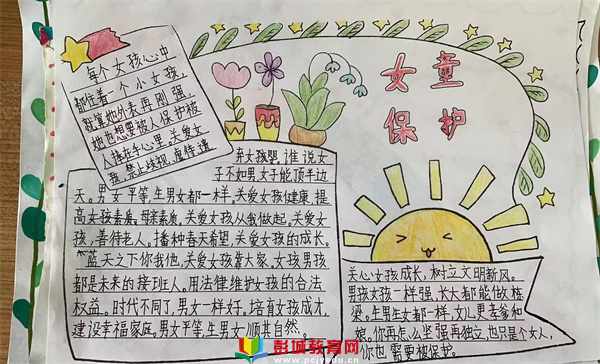 每个女孩心中
都住着一个小女孩,
就算她外表再刚强,
她也想要被人保护被
人捧在手心里。关爱女
孩,禁止歧视、虐待、遗
弃女孩婴。谁说女
子不如男,女子能顶半边
天。男女平等,生男女都一样。关爱女孩健康,提
高女孩素质。母亲素质。关爱女孩从我做起。关爱女
孩,善待老人。播种春天希望,关爱女孩的成长。
蓝天之下你我他,关爱女孩靠大家。女孩男孩
都是未来的接班人。用法律维护女孩的合法
权益。时代不同了,男女一样好。培育女孩成才,
建设幸福家庭。男女平等,生男生女顺其自然。
女童
保护
关心女孩成长,树立文明新风。
男孩女孩一样强,长大都能做栋
梁。生男生女都一样,女儿更孝爹和
娘。你再怎么坚强再独立,也只是个女人,
你也需要被保护。
彭城教育网
www.pcjyw.com